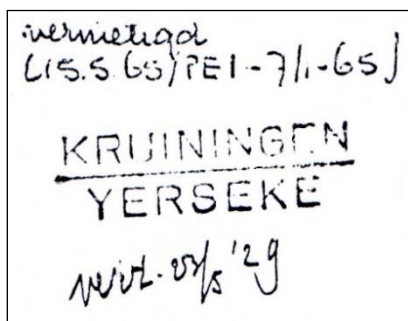 vernietigd
(15.5.65/PEI-7/1-65)
KRUININGEN
YERSEKE
'29